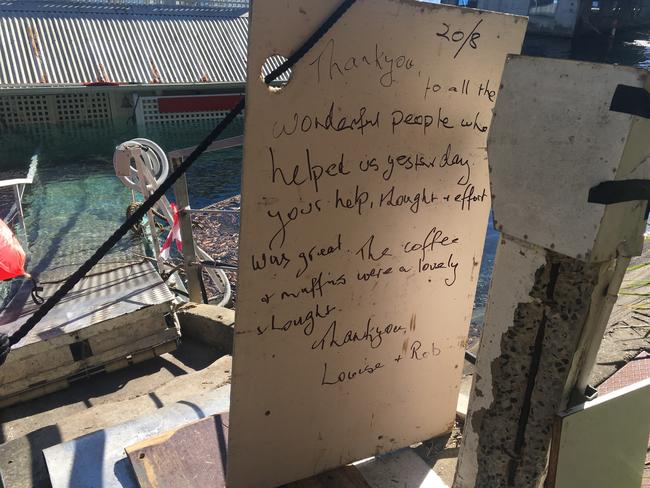 20/8
Thankyou
to all the
wonderful people who
helped us yesterday
your help, thought + effort
was great. The coffee
+ muffins were a lovely
thought.
Thankyou!!
Louise + Rob